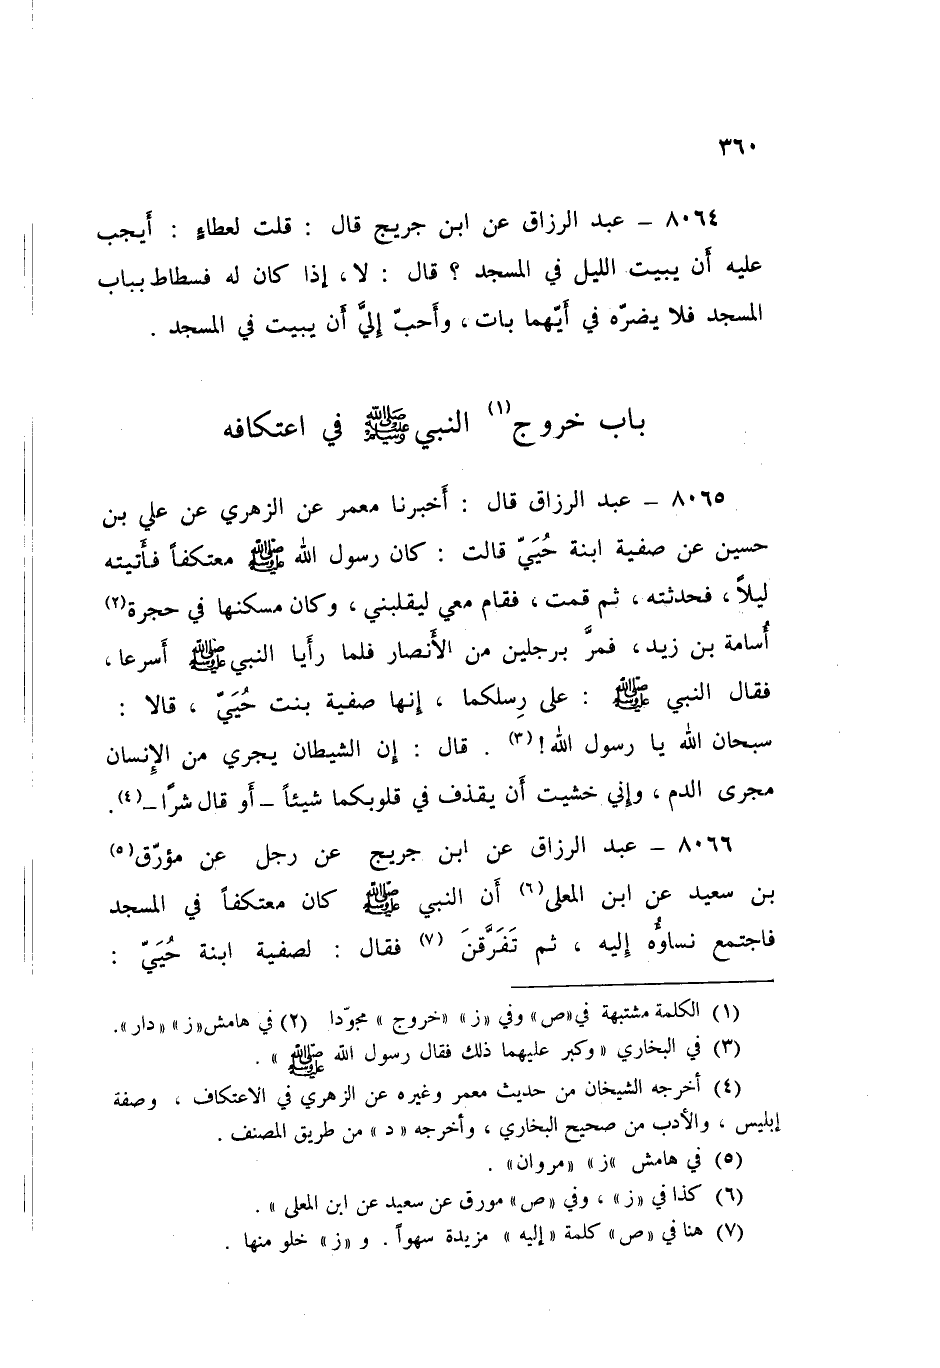 ٣٦٠
٨٠٦٤ – عبد الرزاق عن ابن جريج قال : قلت لعطاءٍ : أَيجب
عليه أَن يبيت الليل في المسجد ؟ قال : لا ، إذا كان له فسطاط بباب
المسجد فلا يضرّه في أَيّهما بات ، وأَحبّ إليَّ أَن يبيت في المسجد .
باب خروج(١) النبي ﷺ في اعتكافه
٨٠٦٥ – عبد الرزاق قال : أَخبرنا معمر عن الزهري عن علي بن
حسين عن صفية ابنة حُيَيّ قالت : كان رسول الله ﷺ معتكفاً فأَتيته
ليلاً ، فحدثته ، ثم قمت ، فقام معي ليقلبني ، وكان مسكنها في حجرة(٢)
أُسامة بن زيد ، فمرَّ برجلين من الأَنصار فلما رأَيا النبي ﷺ أَسرعا ،
فقال النبي ﷺ : على رِسلكما ، إنها صفية بنت حُيَيّ ، قالا :
سبحان الله يا رسول الله !(٣) . قال : إن الشيطان يجري من الإِنسان
مجرى الدم ، وإني خشيت أَن يقذف في قلوبكما شيئاً – أَو قال شرًّا –(٤) .
٨٠٦٦ – عبد الرزاق عن ابن جريج عن رجل عن مؤرّق(٥)
بن سعيد عن ابن المعلى(٦) أَن النبي ﷺ كان معتكفاً في المسجد
فاجتمع نساؤُه إليه ، ثم تَفَرَّقنَ (٧) فقال : لصفية ابنة حُيَيّ :
(١) الكلمة مشتبهة في «ص» وفي «ز» «خروج» مجوّدا (٢) في هامش «ز» «دار» .
(٣) في البخاري «وكبر عليهما ذلك فقال رسول الله ﷺ » .
(٤) أخرجه الشيخان من حديث معمر وغيره عن الزهري في الاعتكاف ، وصفة
إبليس ، والأدب من صحيح البخاري ، وأخرجه «د» من طريق المصنف .
(٥) في هامش «ز» «مروان» .
(٦) كذا في «ز» ، وفي «ص» مورق عن سعيد عن ابن المعلى » .
(٧) هنا في «ص» كلمة «إليه» مزيدة سهواً . و «ز» خلو منها .